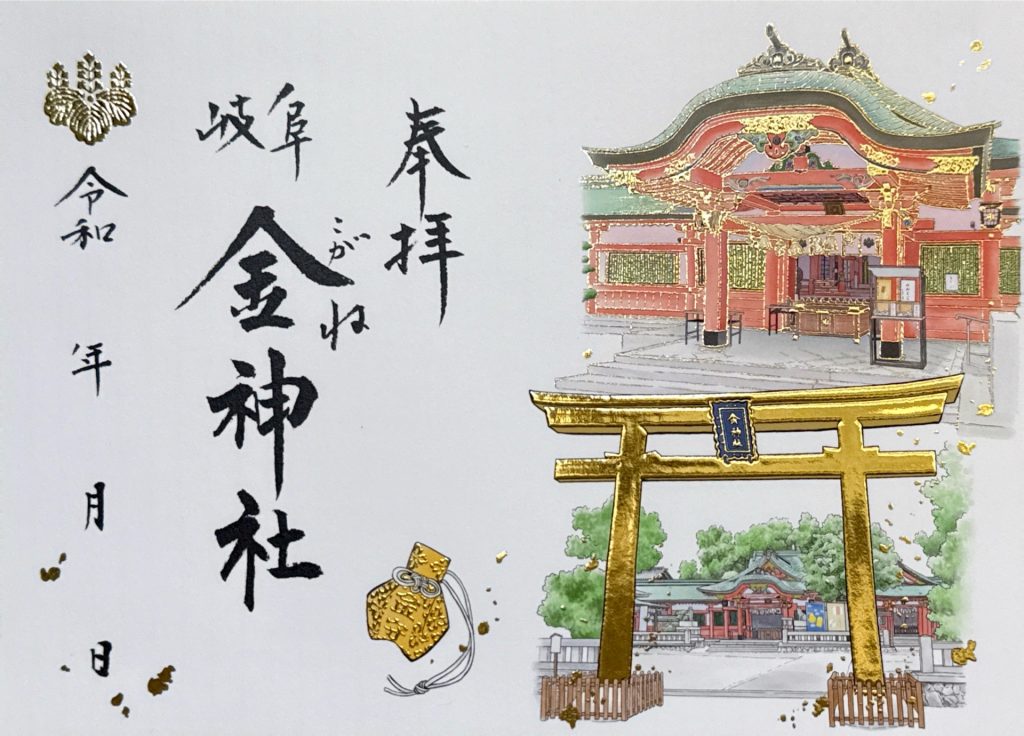 奉拝
岐阜
こがね
金神社
令和 年 月 日
金神社